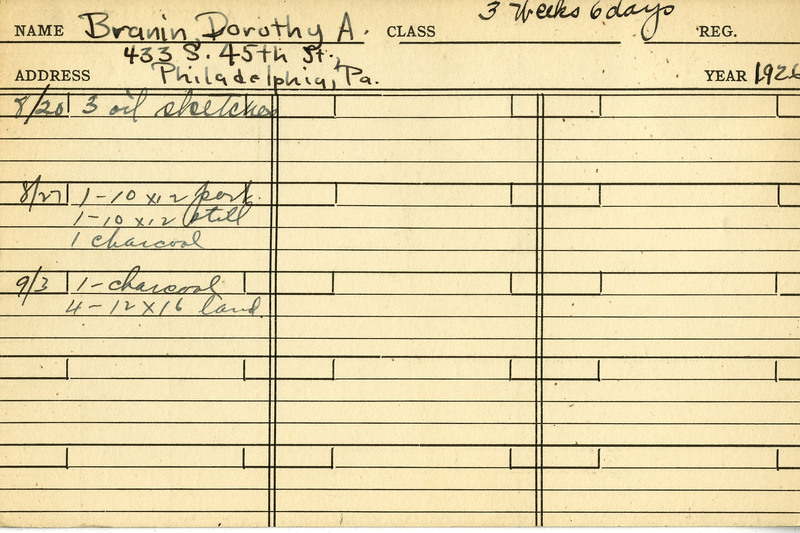 3 Weeks 6 days
NAME Branin, Dorothy A. CLASS REG.
433 S. 45th St.,
ADDRESS Philadelphia, Pa. YEAR 1926
8/20 3 oil sketches
8/27 1-10 x 12 port.
1-10 x 12 still
1 charcoal
9/3 1-charcoal
4-12 x 16 land.